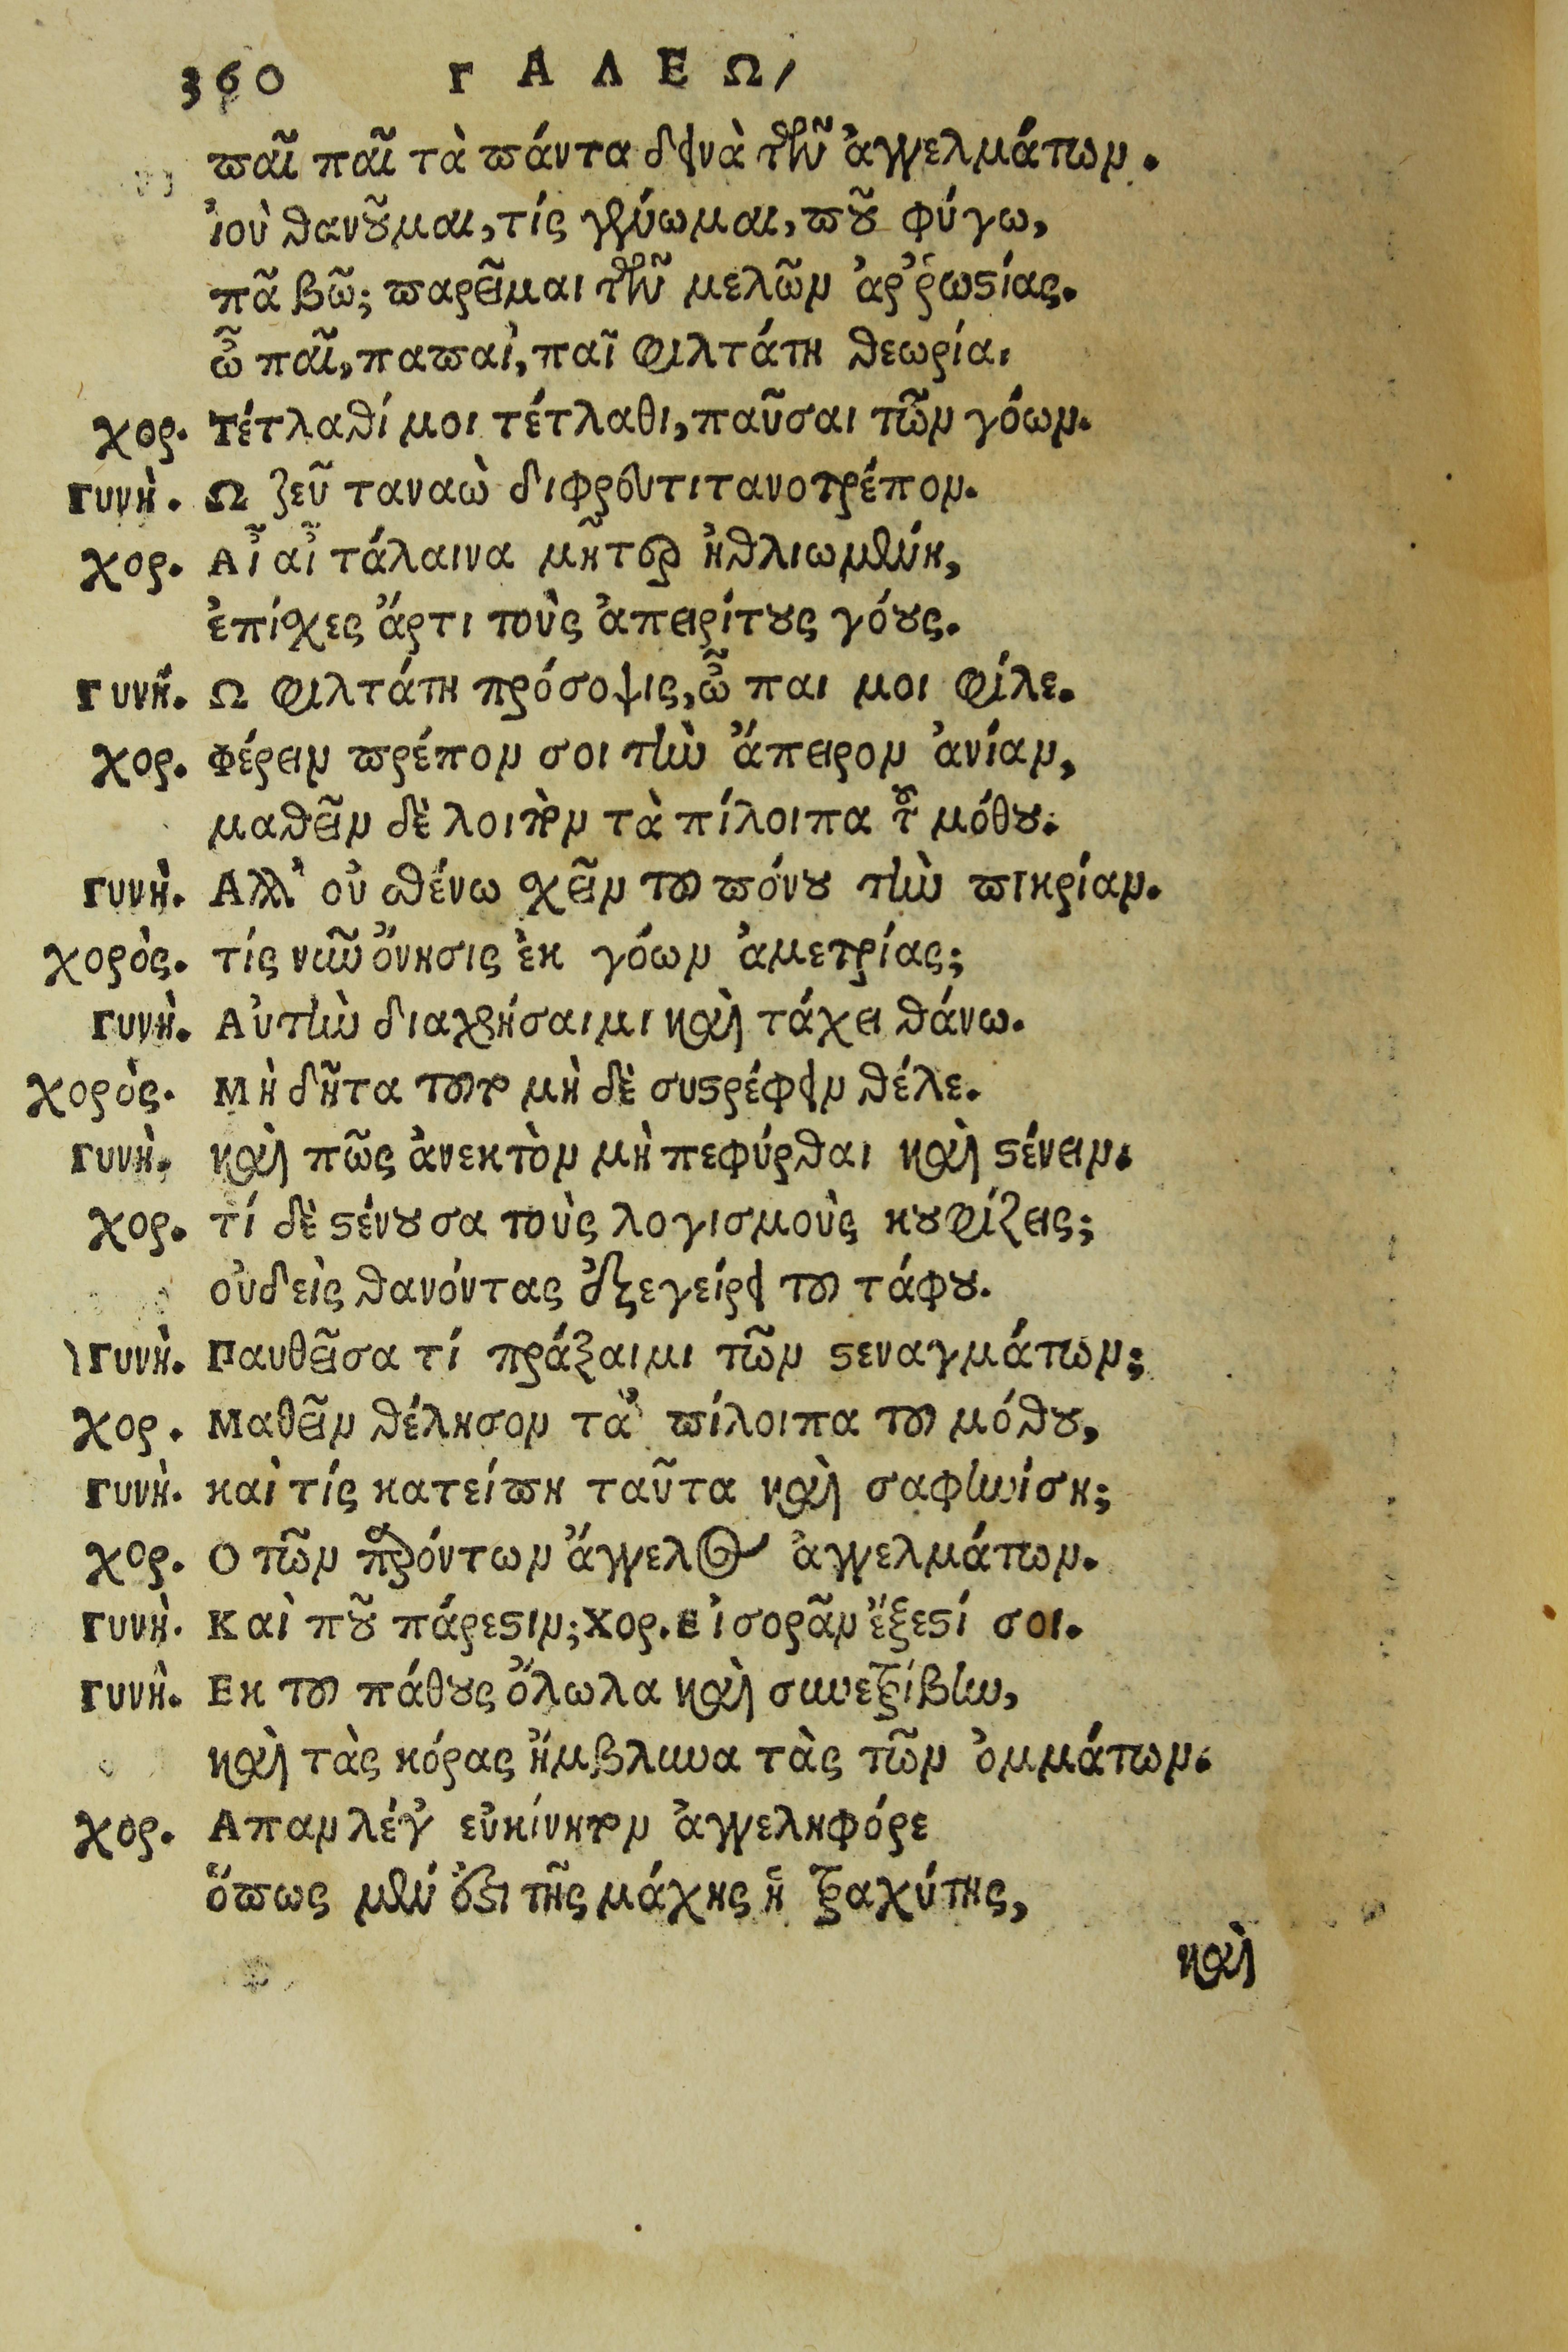 360 ΓΑΛΕΩ,
παῖ παῖ τὰ πάντα δεινὰ τῶν ἀγγελμάτων.
ἰοὺ θανοῦμαι, τίς γένωμαι, ποῦ φύγω,
πᾶ βῶ; παρεῖμαι τῶν μελῶν ἀῤῥωστίας.
ὦ παῖ, παπαὶ, παῖ φιλτάτη θεωρία,
χορ. Τέτλαθί μοι τέτλαθι, παῦσαι τῶν γόων.
Γυνὴ. Ω ζεῦ ταναὼ διφροῦντιτανοτρέπον.
χορ. Αἶ αἶ τάλαινα μῆτερ ἠθλιωμένη,
ἐπίχες ἄρτι τοὺς ἀπειρίτους γόους.
Γυνή. Ω φιλτάτη πρόσοψις, ὦ παι μοι φίλε.
χορ. Φέρειν πρέπον σοι τὴν ἄπειρον ἀνίαν,
μαθεῖν δὲ λοιπὸν τὰ πίλοιπα τοῦ μόθου.
Γυνὴ. Αλλ' οὐ σθένω χεῖν τοῦ πόνου τὴν πικρίαν.
χορὸς. τίς νῦν ὄνησις ἐκ γόων ἀμετρίας;
Γυνὴ. Αὐτὴν διαχρήσαιμι καὶ τάχει θάνω.
χορὸς. Μὴ δῆτα τοῦτο μὴ δὲ συστρέφειν θέλε.
Γυνὴ. καὶ πῶς ἀνεκτὸν μὴ πεφύρθαι καὶ στένειν.
χορ. τί δὲ στένουσα τοὺς λογισμοὺς κουφίζεις;
οὐδεὶς θανόντας ἐξεγείρει τοῦ τάφου.
Γυνὴ. Παυθεῖσα τί πράξαιμι τῶν στεναγμάτων;
χορ. Μαθεῖν θέλησον τἀ πίλοιπα τοῦ μόθου,
Γυνὴ. καὶ τίς κατείπη ταῦτα καὶ σαφηνίση;
χορ. Ο τῶν παρόντων ἄγγελος ἀγγελμάτων.
Γυνὴ. Καὶ ποῦ πάρεστιν; Χορ. εἰσορᾶν ἔξεστί σοι.
Γυνὴ. Εκ τοῦ πάθους ὄλωλα καὶ συνετρίβην,
καὶ τὰς κόρας ἤμβλυνα τὰς τῶν ὀμμάτων.
χορ. Απαν λέγ' εὐκίνητον ἀγγεληφόρε
ὅπως μὲν ἔξι τῆς μάχης ἡ τραχύτης,
καὶ